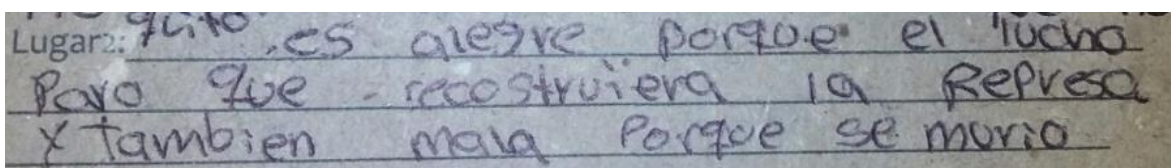 Lugar2: quito .es alegre porque el lucho
Paro que recostruiera la Represa
y tambien mala Porque se murio